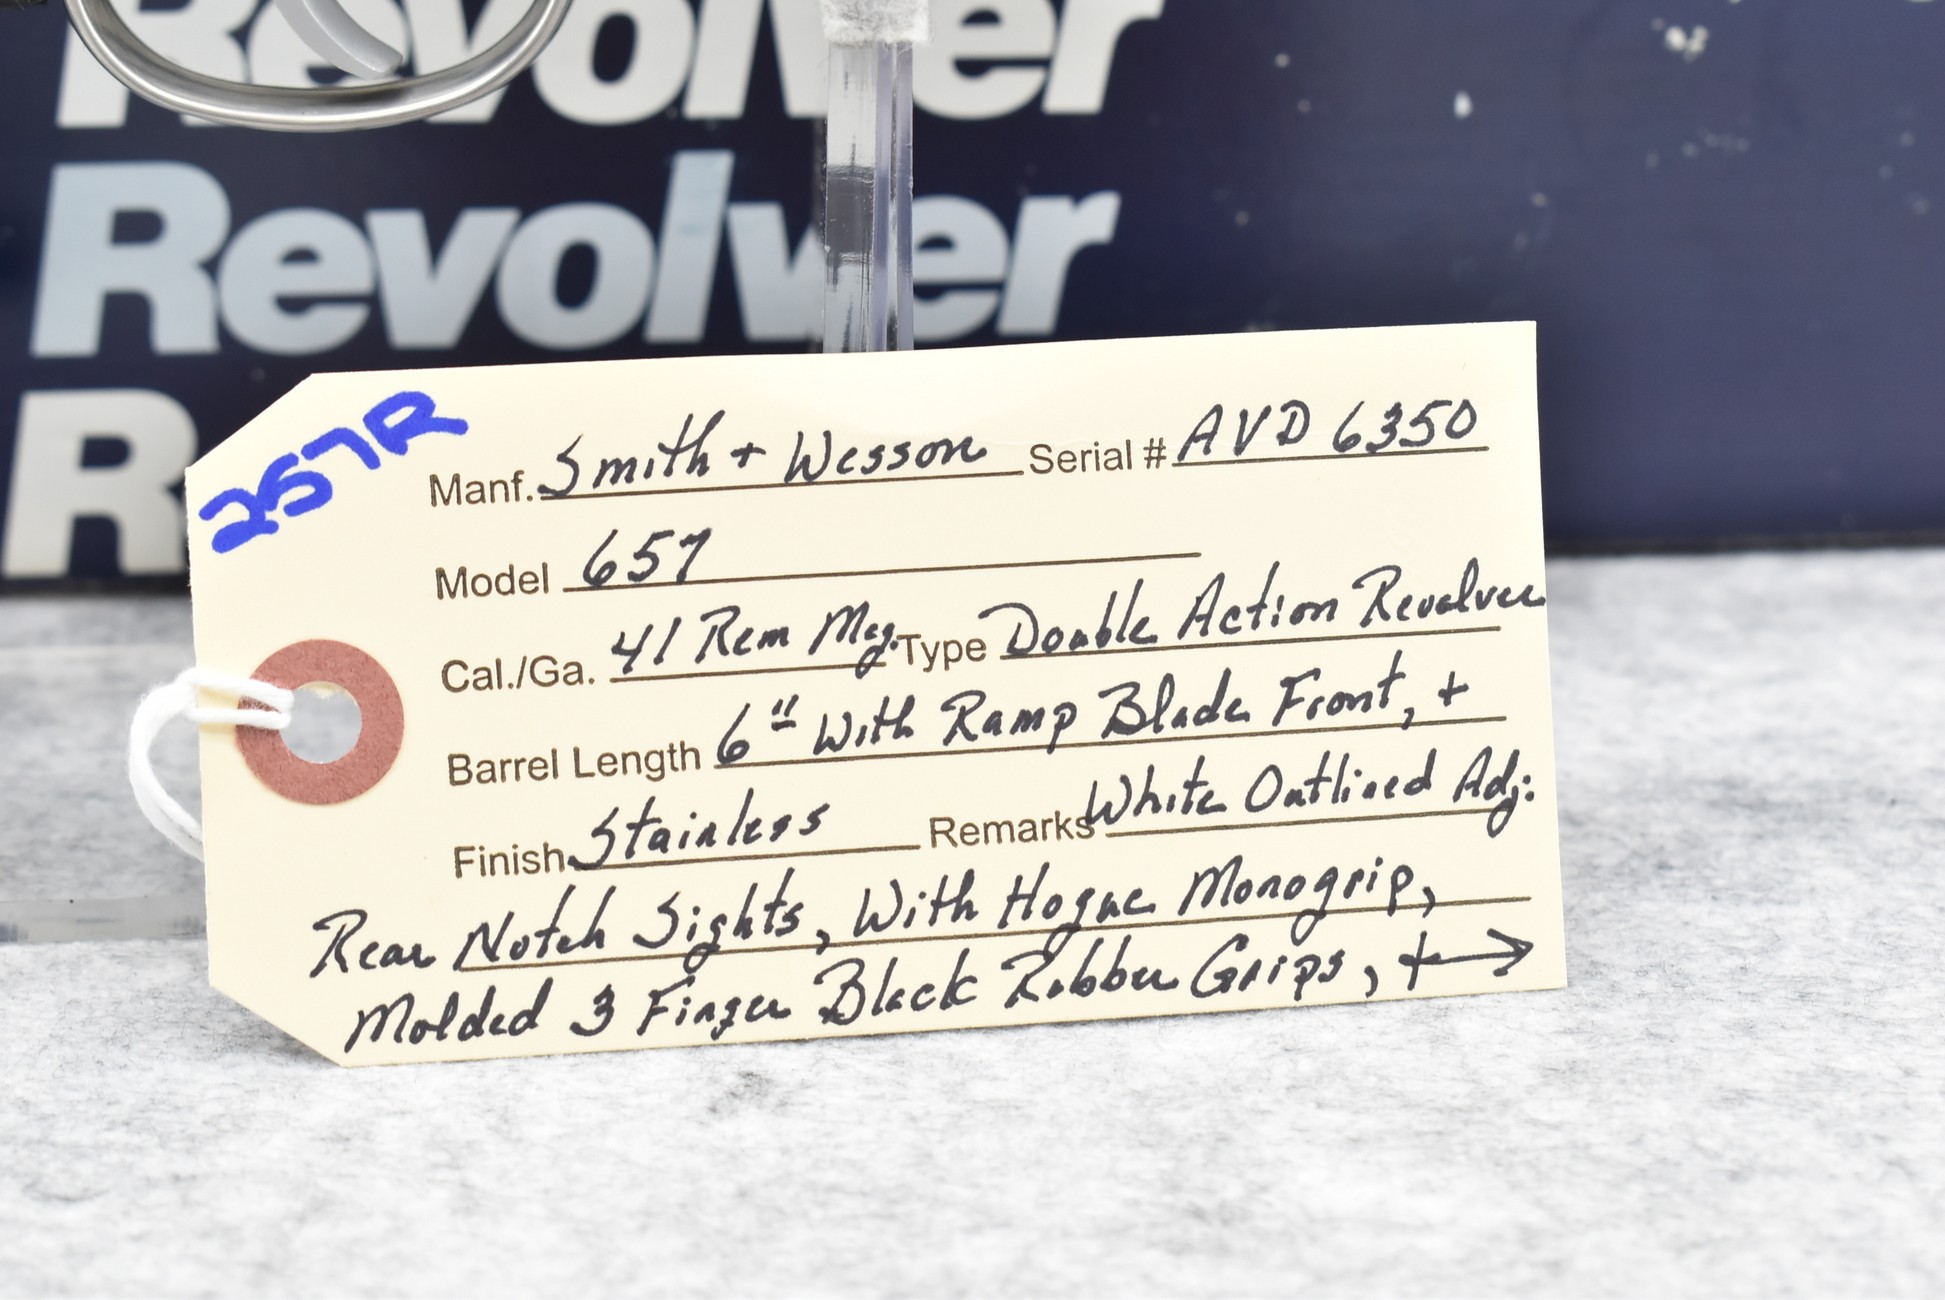 Revolver
Revolver
R
257R
Manf. Smith + Wesson Serial # AVD 6350
Model 657
Cal./Ga. 41 Rem Mag. Type Double Action Revolver
Barrel Length 6" With Ramp Blade Front, +
Finish Stainless Remarks White Outlined Adj.
Rear Notch Sights, With Hogue Monogrip,
Molded 3 Finger Black Rubber Grips, + →